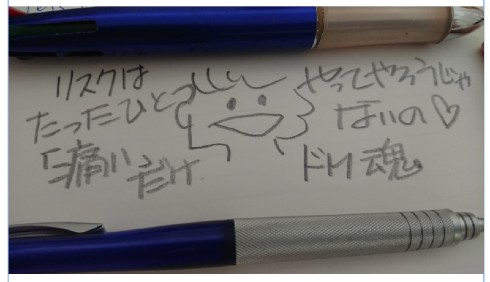 リスクは
たったひとつ
痛いだけ
やってやろうじゃ
ないの♡
ドM魂